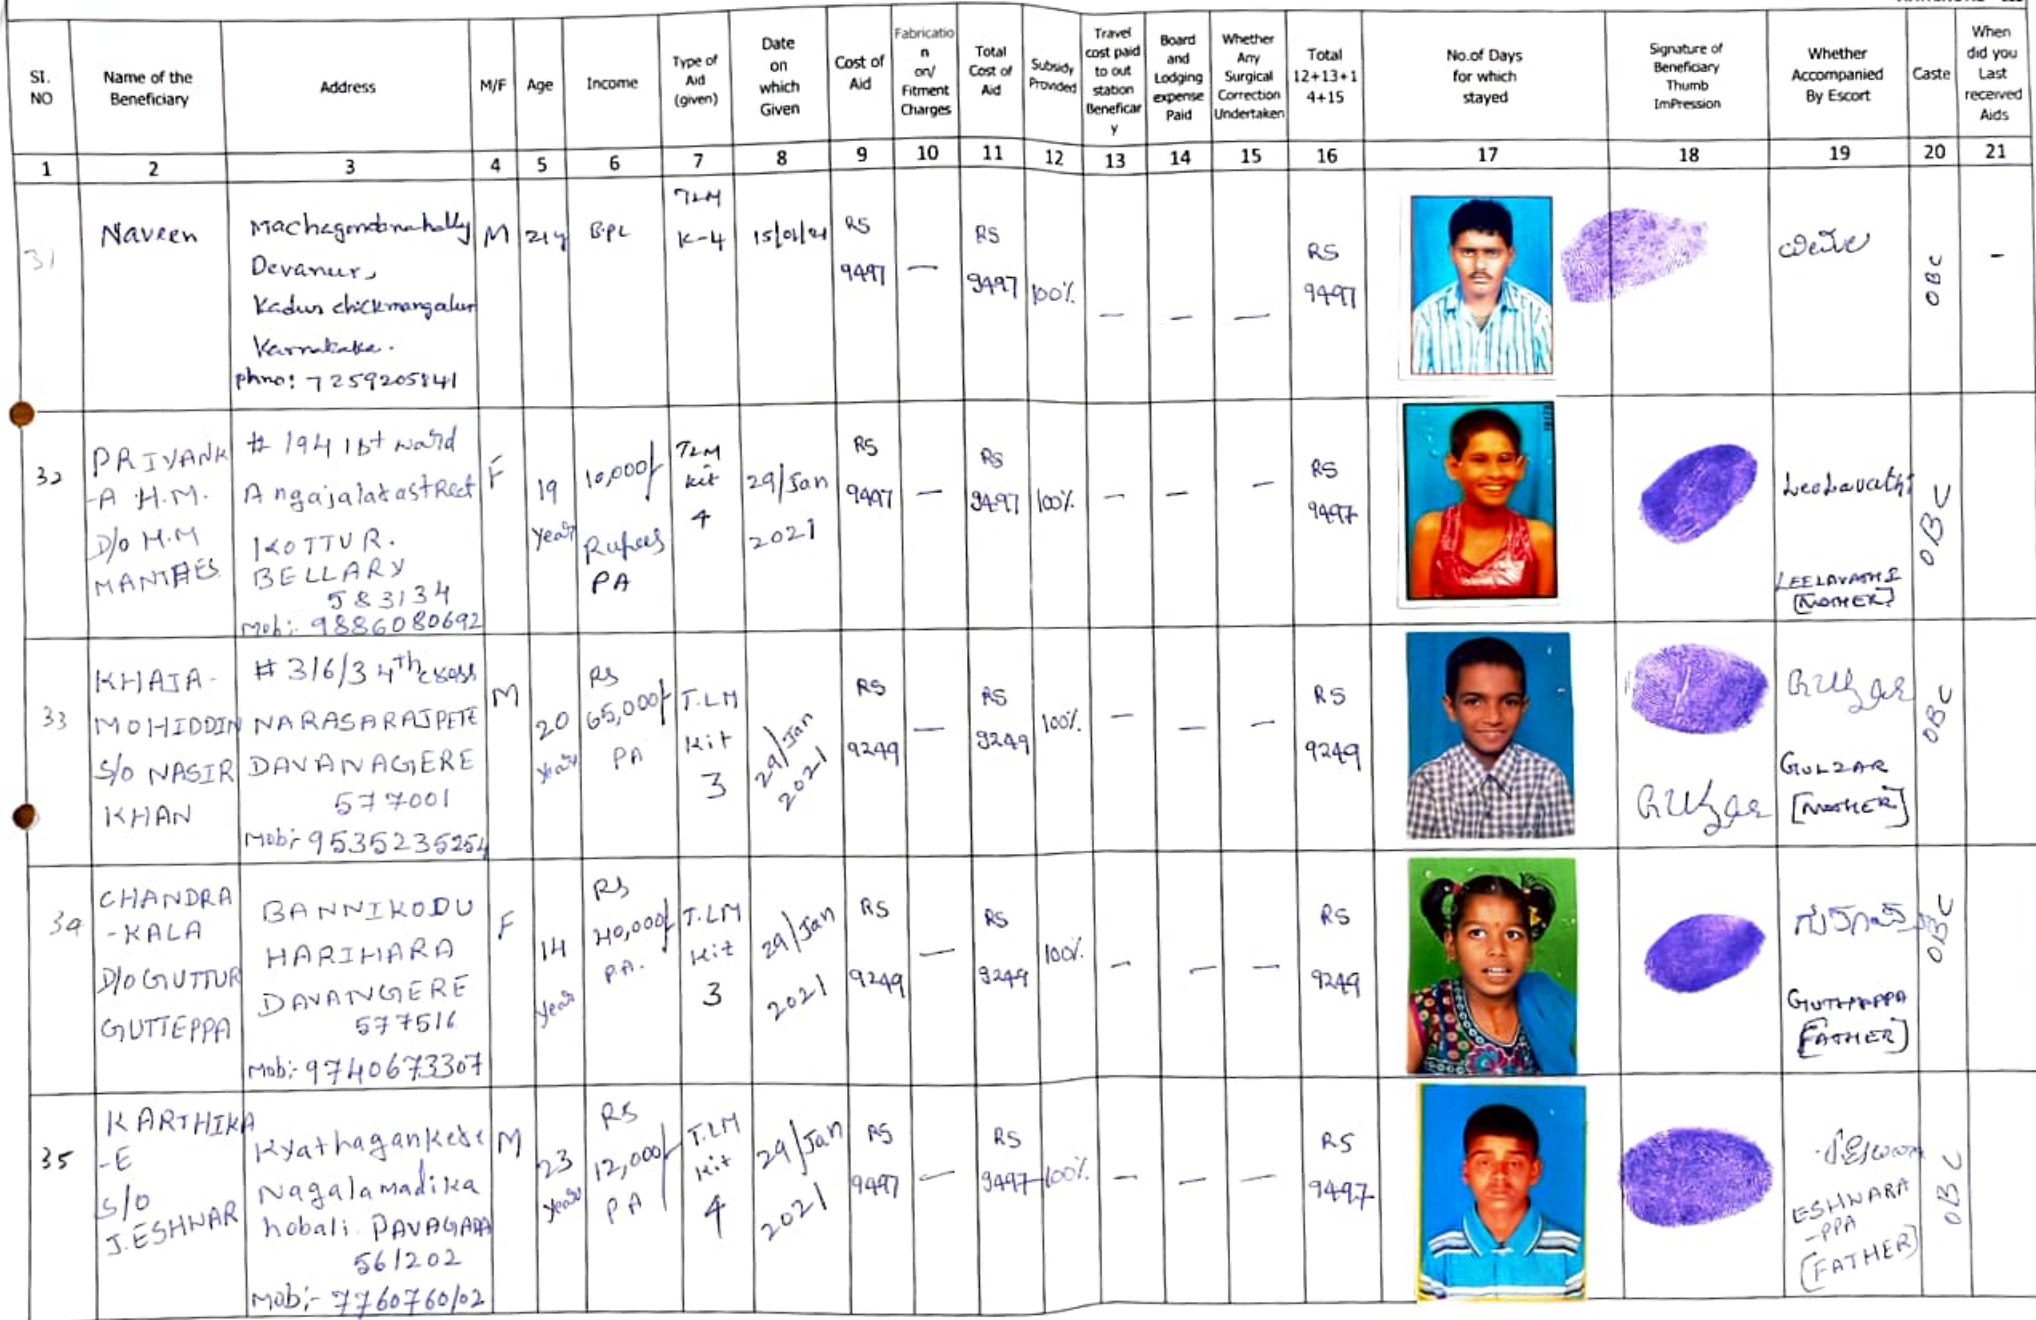 SI.
NO
Name of the
Beneficiary
Address
M/F
Age
Income
Type of
Aid
(given)
Date
on
which
Given
Cost of
Aid
Fabricatio
n
on/
Fitment
Charges
Total
Cost of
Aid
Subsidy
Provided
Travel
cost paid
to out
station
Beneficar
y
Board
and
Lodging
expense
Paid
Whether
Any
Surgical
Correction
Undertaken
Total
12+13+1
4+15
No.of Days
for which
stayed
Signature of
Beneficiary
Thumb
ImPression
Whether
Accompanied
By Escort
Caste
When
did you
Last
received
Aids
1 2 3 4 5 6 7 8 9 10 11 12 13 14 15 16 17 18 19 20 21
31
Naveen
Machagondanahally
Devanur,
Kadur chickmangalur
Karnataka.
phno: 7259205841
M
21y
BPL
TLM
K-4
15/01/21
RS
9497
—
RS
9497
100%
—
—
—
RS
9497
OBC
-
32
PRIYANK
-A H.M.
D/o H.M
MANTHES
# 194 1st ward
Angajalakastreet
KOTTUR.
BELLARY
583134
Mob:- 9886080692
F
19
year
10,000/-
Rupees
PA
TLM
kit
4
29/Jan
2021
RS
9497
—
RS
9497
100%
—
—
—
RS
9497
Leelavathi
LEELAVATHI
[MOTHER]
OBC
33
KHAJA-
MOHIDDIN
S/O NASIR
KHAN
# 316/3 4th cross
NARASARAJPETE
DAVANAGERE
577001
Mob:- 9535235254
M
20
year
RS
65,000/-
PA
T.LM
Kit
3
29/Jan
2021
RS
9249
—
RS
9249
100%
—
—
—
RS
9249
Gulzar
Gulzar
GULZAR
[MOTHER]
OBC
34
CHANDRA
-KALA
D/O GUTTUR
GUTTEPPA
BANNIKODU
HARIHARA
DAVANGERE
577516
Mob:- 9740673307
F
14
year
RS
40,000/-
P.A.
T.LM
Kit
3
29/Jan
2021
RS
9249
—
RS
9249
100%
—
—
—
RS
9249
[FATHER]
OBC
35
KARTHIKA
-E
S/O
J.ESHWAR
Kyathagankere
Nagalamadika
hobali. PAVAGADA
561202
Mob:- 7760760102
M
23
year
RS
12,000/-
PA
T.LM
Kit
4
29/Jan
2021
RS
9497
—
RS
9497
100%
—
—
—
RS
9497
ESHWARA
-PPA
[FATHER]
OBC